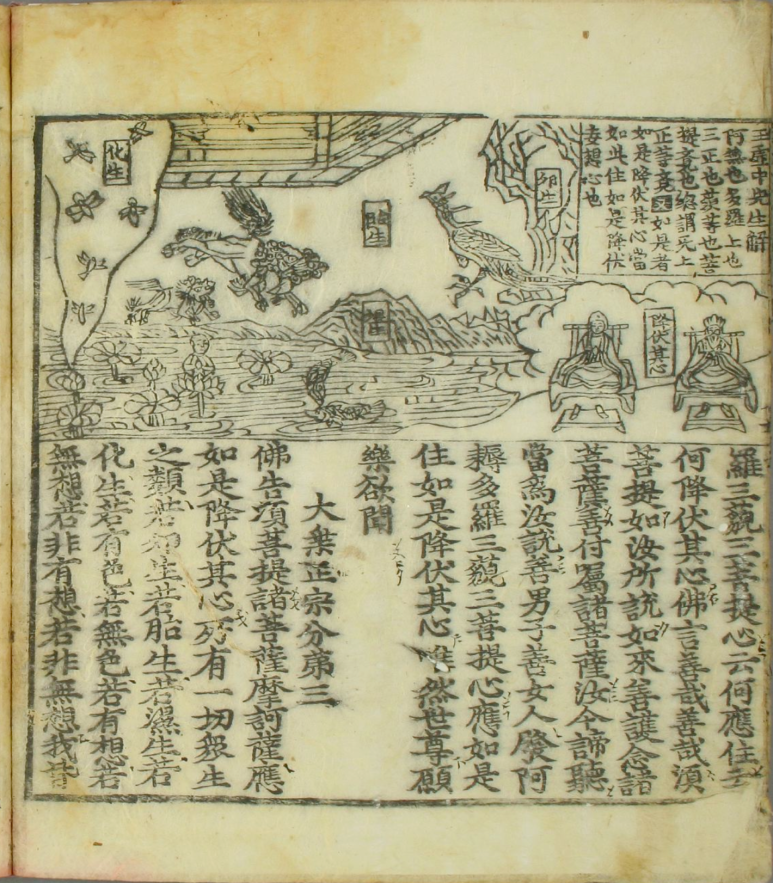 王虛中先生解
阿無也多羅上也
三正也藐等也菩
提覺也總謂无上
正等覺如是者
如是降伏其心當
如此住如是降伏
妄想心也
卵生
胎生
濕生
化生
降伏其心
羅三藐三菩提心云何應住云
何降伏其心佛言善哉善哉湏
菩提如汝所說如來善護念諸
菩薩善付囑諸菩薩汝今諦聽
當爲汝說善男子善女人發阿
耨多羅三藐三菩提心應如是
住如是降伏其心唯然世尊願
樂欲聞
大乘正宗分第三
佛告須菩提諸菩薩摩訶薩應
如是降伏其心所有一切衆生
之類若卵生若胎生若濕生若
化生若有色若無色若有想若
無想若非有想若非無想我皆